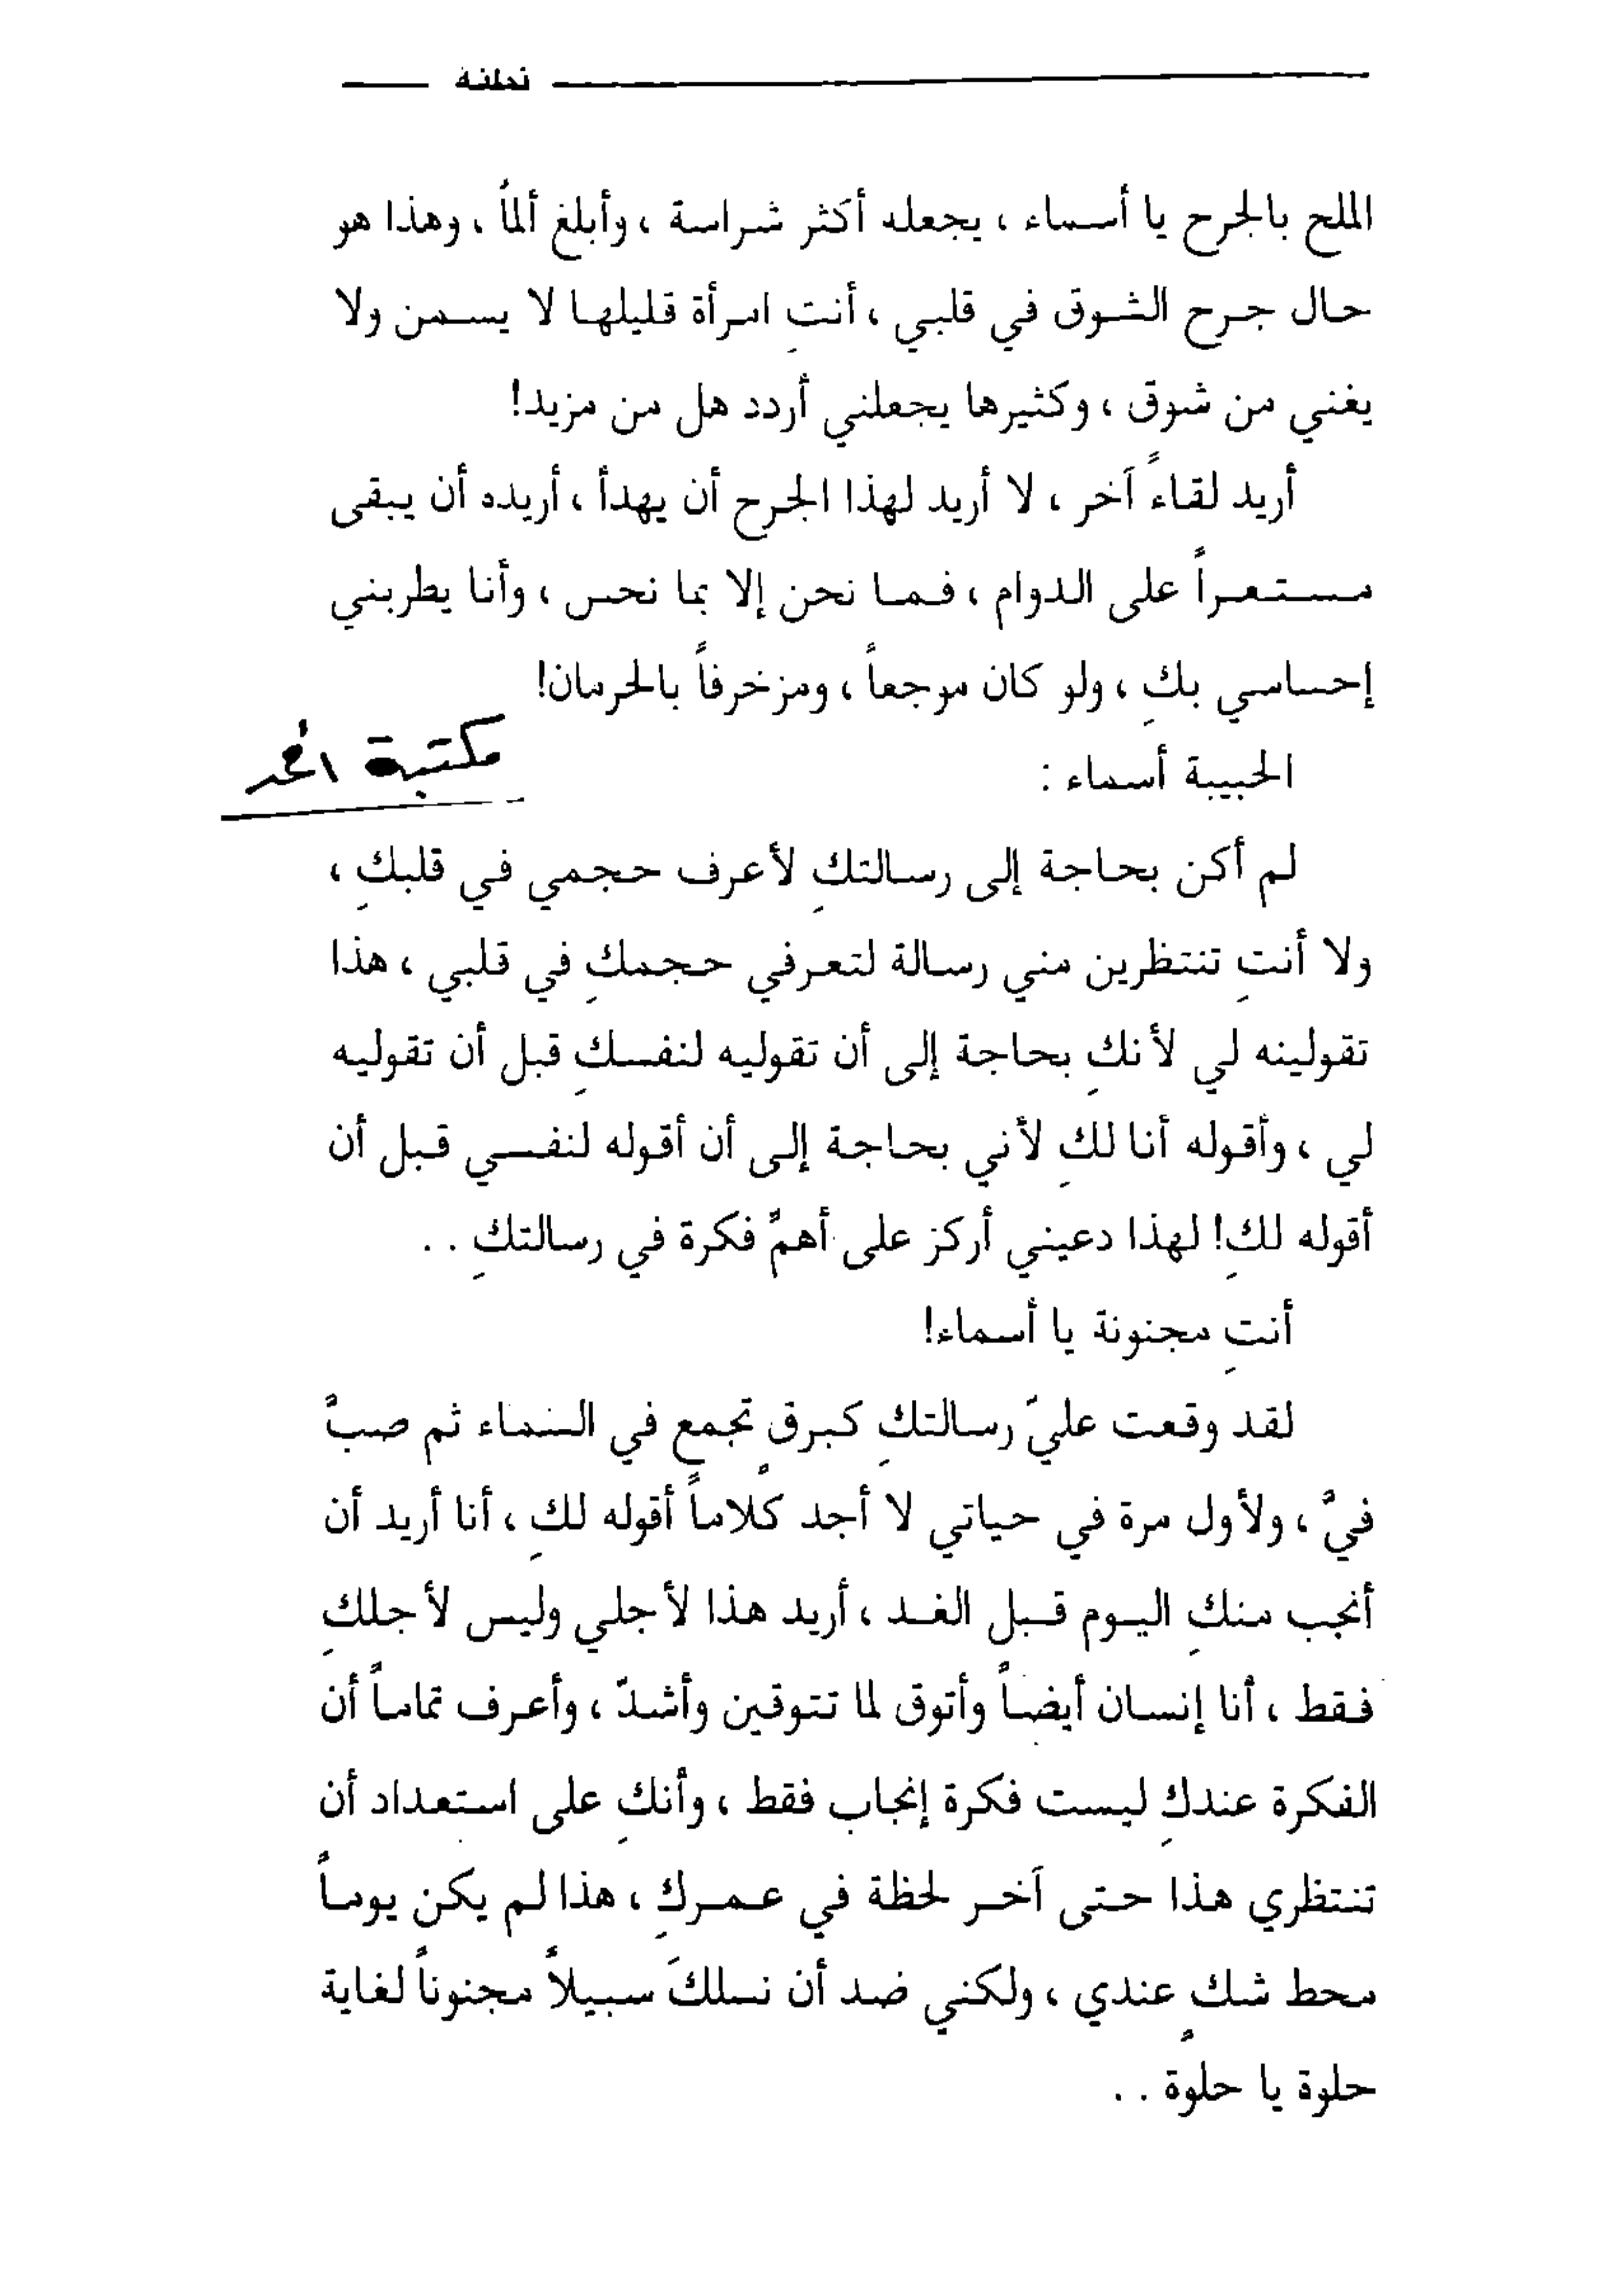 نطفة
الملح بالجرح يا أسماء ، يجعله أكثر شراسة ، وأبلغ ألماً ، وهذا هو
حال جرح الشوق في قلبي ، أنتِ امرأة قليلها لا يسمن ولا
يغني من شوق ، وكثيرها يجعلني أردد هل من مزيد!
أريد لقاءً آخر ، لا أريد لهذا الجرح أن يهدأ ، أريده أن يبقى
مستعراً على الدوام ، فما نحن إلا بما نحس ، وأنا يطربني
إحساسي بكِ ، ولو كان موجعاً ، ومزخرفاً بالحرمان!
مكتبة
الحبيبة أسماء :
لم أكن بحاجة إلى رسالتكِ لأعرف حجمي في قلبكِ ،
ولا أنتِ تنتظرين مني رسالة لتعرفي حجمكِ في قلبي ، هذا
تقولينه لي لأنكِ بحاجة إلى أن تقوليه لنفسكِ قبل أن تقوليه
لي ، وأقوله أنا لكِ لأني بحاجة إلى أن أقوله لنفسي قبل أن
أقوله لكِ! لهذا دعيني أركز على أهمّ فكرة في رسالتكِ . .
أنتِ مجنونة يا أسماء!
لقد وقعت عليّ رسالتكِ كبرقٍ تجمع في السماء ثم صبَّ
فيَّ ، ولأول مرة في حياتي لا أجد كلاماً أقوله لكِ ، أنا أريد أن
أنجب منكِ اليوم قبل الغد ، أريد هذا لأجلي وليس لأجلكِ
فقط ، أنا إنسان أيضاً وأتوق لما تتوقين وأشدّ ، وأعرف تماماً أن
الفكرة عندكِ ليست فكرة إنجاب فقط ، وأنكِ على استعداد أن
تنتظري هذا حتى آخر لحظة في عمركِ ، هذا لم يكن يوماً
محط شكٍ عندي ، ولكني ضد أن نسلكَ سبيلاً مجنوناً لغاية
حلوة يا حلوة . .